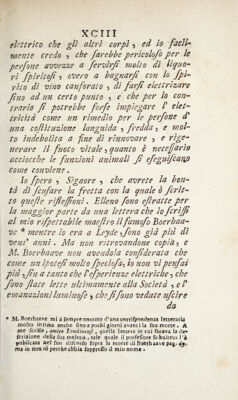 XCIII
elettrico che gli altri corpi, ed io facil-
mente credo, che sarebbe pericoloso per le
persone avvezze a servirsi molto di liquo-
ri spiritosi, ovvero a bagnarsi con lo spi-
rito di vino canforato, di farsi elettrizare
sino ad un certo punto, e che per lo con-
trario si potrebbe forse impiegare l' elet-
tricità come un rimedio per le persone d'
una costituzione languida, fredda, e mol-
to indebolita a fine di rinnovare, e rige-
nerare il fuoco vitale, quanto è necessario
acciocchè le funzioni animali si eseguiscano
come conviene.
Io spero, Signore, che avrete la bon-
tà di scusare la fretta con la quale è scrit-
to queste riflessioni. Elleno sono estratte per
la maggior parte da una lettera che io scrissi
al mio rispettabile maestro il famoso Boerhaa-
ve * mentre io era a Leyde, sono già più di
vent' anni. Ma non ritrovandone copia, e
M. Boerhaave non avendola considerata che
come un ipotesi molto speciosa, io non vi pensai
più, sin a tanto che l'esperienze elettriche, che
sono state lette ultimamente alla Società, e l'
emanazioni luminose, che si sono vedute uscire
da
* M. Boerhaave mi à sempre onorato d'una corrispondenza letteraria
molto intima anche sino a pochi giorni avanti la sua morte. A
me scrisse, amico Londinensi, quella lettera in cui faceva la de-
scrizione della sua malatia, tale quale il professore Schultens l'à
pubblicata nel suo discorso sopra la morte di Boerhaave pag.
ma io non sò perchè abbia soppresso il mio nome.